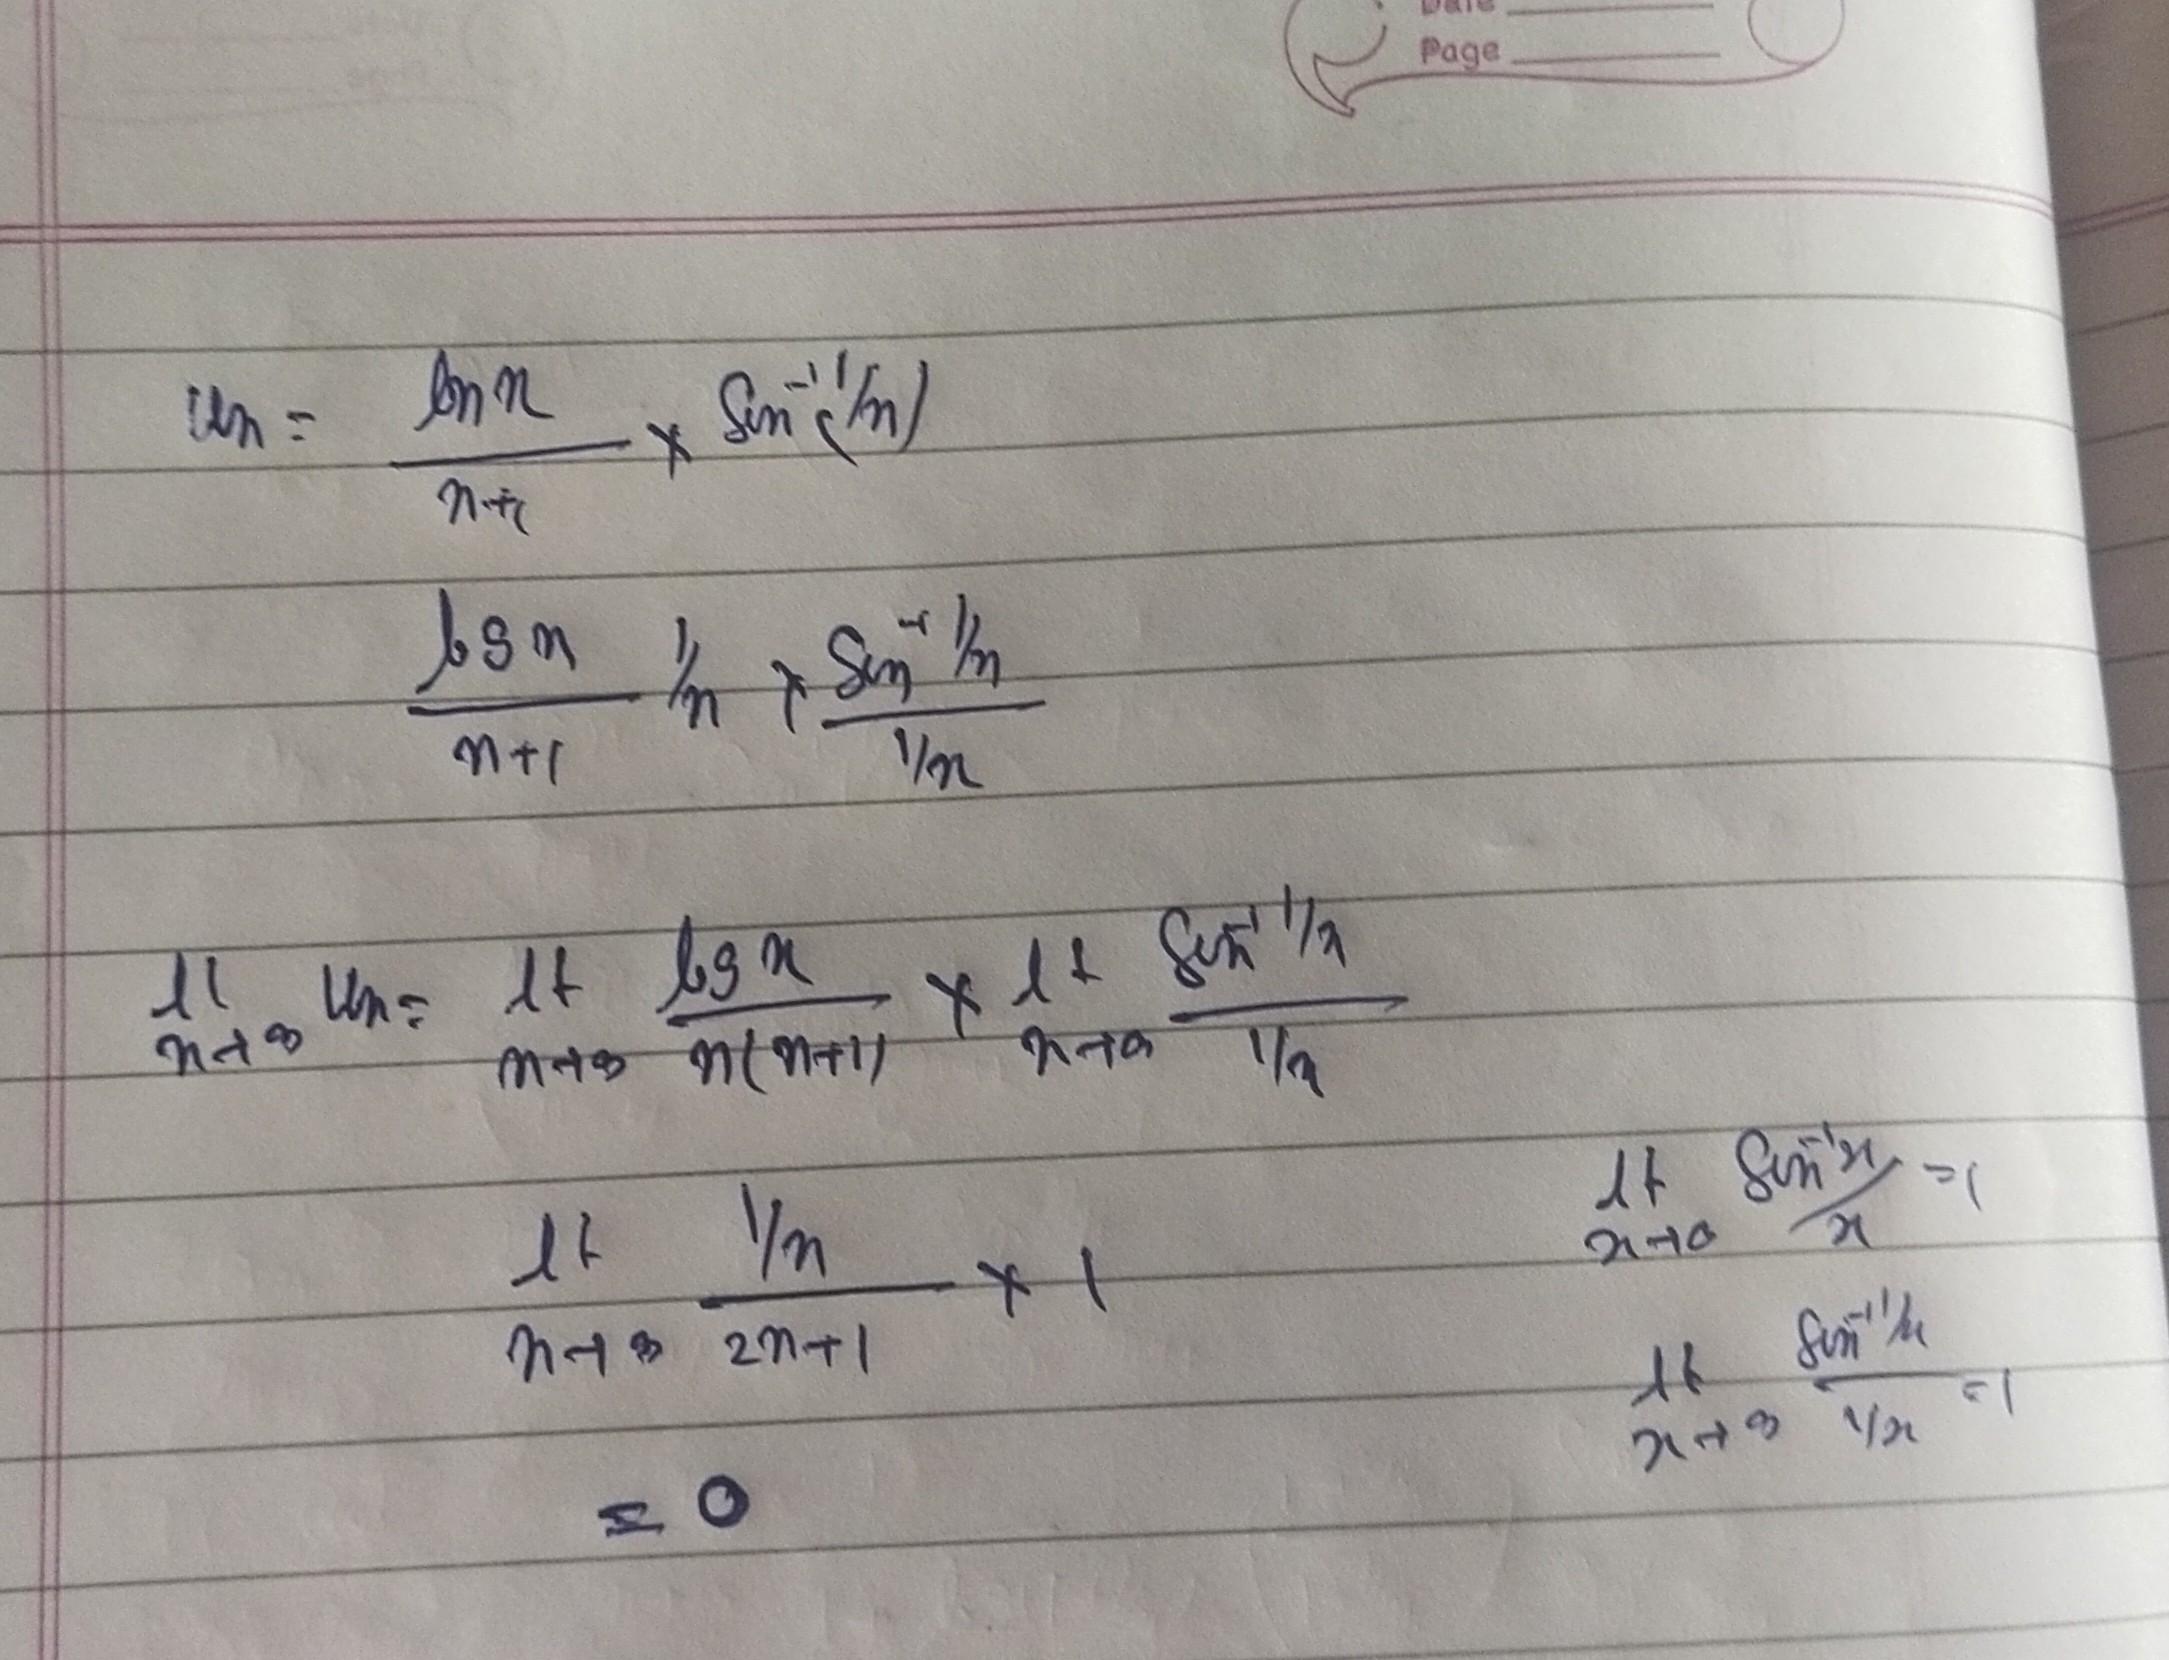 Date
Page
Un = ln n / n+1 × Sin⁻¹(1/n)
log n / n+1 1/n × Sin⁻¹ 1/n / 1/n
lt n→∞ Un = lt n→∞ log n / n(n+1) × lt n→∞ Sin⁻¹ 1/n / 1/n
lt x→0 Sin⁻¹x / x = 1
lt n→∞ 1/n / 2n+1 × 1
lt x→∞ Sin⁻¹ 1/x / 1/x = 1
= 0